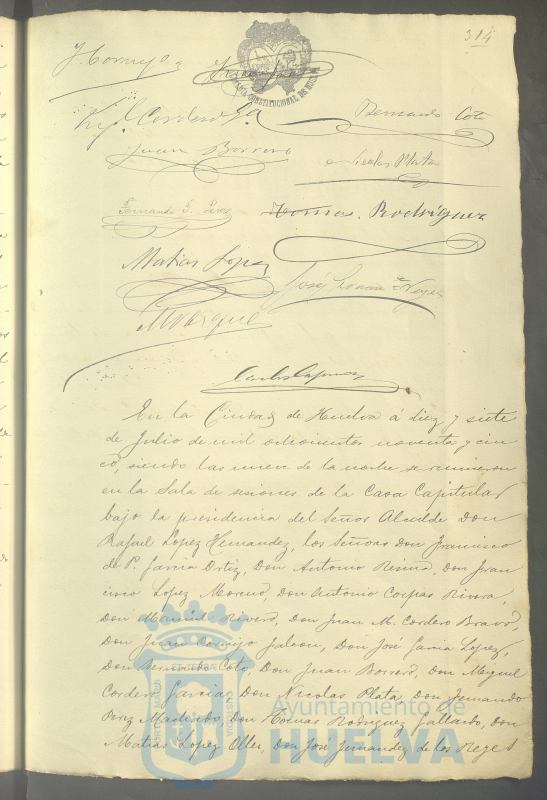 314
J. Cornejo
Mig.l Cordero
Bernardo Coto
Juan Borrero
Nicolas Plata
Fernando G. Perez
Tomas Rodriguez
Matias Lopez
José
M Vazquez
En la Ciudad de Huelva á diez y siete
de Julio de mil ochocientos noventa y cin
co, siendo las nueve de la noche se reunieron
en la Sala de sesiones de la Casa Capitular
bajo la presidencia del Señor Alcalde Don
Rafael Lopez Hernandez, los Señores Don Francisco
de P. Garcia Ortiz, Don Antonio Don Fran
cisco Lopez Moreno, Don Antonio Corpas Rivera,
Don Rivero, Don Juan M. Cordero Bravo,
Don Juan Cornejo Don José Garcia Lopez,
Don Bernardo Coto, Don Juan Borrero, Don Miguel
Cordero Don Nicolas Plata, Don Fernando
Perez Don Tomas Rodriguez Gallardo, Don
Matias Lopez Oller, Don José Fernandez de los Reyes
Ayuntamiento de
HUELVA